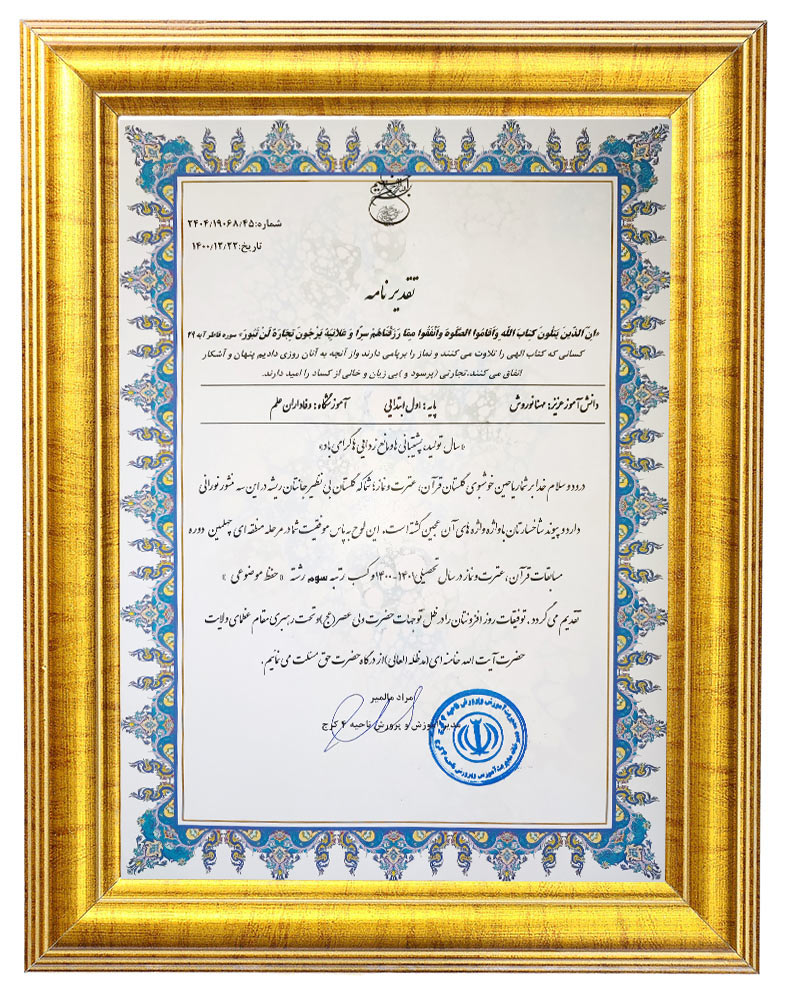 شماره:۲۴۰۴/۱۹۰۶۸/۴۵
تاریخ:۱۴۰۰/۱۲/۲۲
تقدیرنامه
«انَّ الذّینَ یَتلُونَ کِتابَ اللّهِ وَاَقامُوا الصَّلوهَ وَانْفَقُوا مِمّا رَزَقْناهُمْ سِرًّا وَ عَلانِیَهً یَرْجُونَ تِجارَهً لَنْ تَبُورَ» سوره فاطر آیه ۲۹
کسانی که کتاب الهی را تلاوت می کنند و نماز را برپامی دارند واز آنچه به آنان روزی دادیم پنهان و آشکار
انفاق می کنند،تجارتی (پرسود و )بی زیان و خالی از کساد را امید دارند.
دانش آموز عزیز: مهنا نوروش پایه: اول ابتدایی آموزشگاه: وفاداران علم
«سال تولید، پشتیبانی ها و مانع زدایی ها گرامی باد»
درود و سلام خدا بر شما ریاحین خوشبوی گلستان قرآن، عترت و نماز؛ شما که گلستان بی نظیر جانتان ریشه در این سه منشور نورانی
دارد و پیوند شاخسارتان با واژه واژه های آن عجین گشته است. این لوح به پاس موفقیت شما در مرحله منطقه ای چهلمین دوره
مسابقات قرآن، عترت و نماز در سال تحصیلی ۱۴۰۱-۱۴۰۰ و کسب رتبه سوم رشته «حفظ موضوعی »
تقدیم می گردد. توفیقات روز افزونتان را در ظل توجهات حضرت ولی عصر(عج) و تحت رهبری مقام عظمای ولایت
حضرت آیت الله خامنه ای (مدظله العالی) از درگاه حضرت حق مسئلت می نمایم.
مراد مالمیر
مدیر آموزش و پرورش ناحیه ۴ کرج